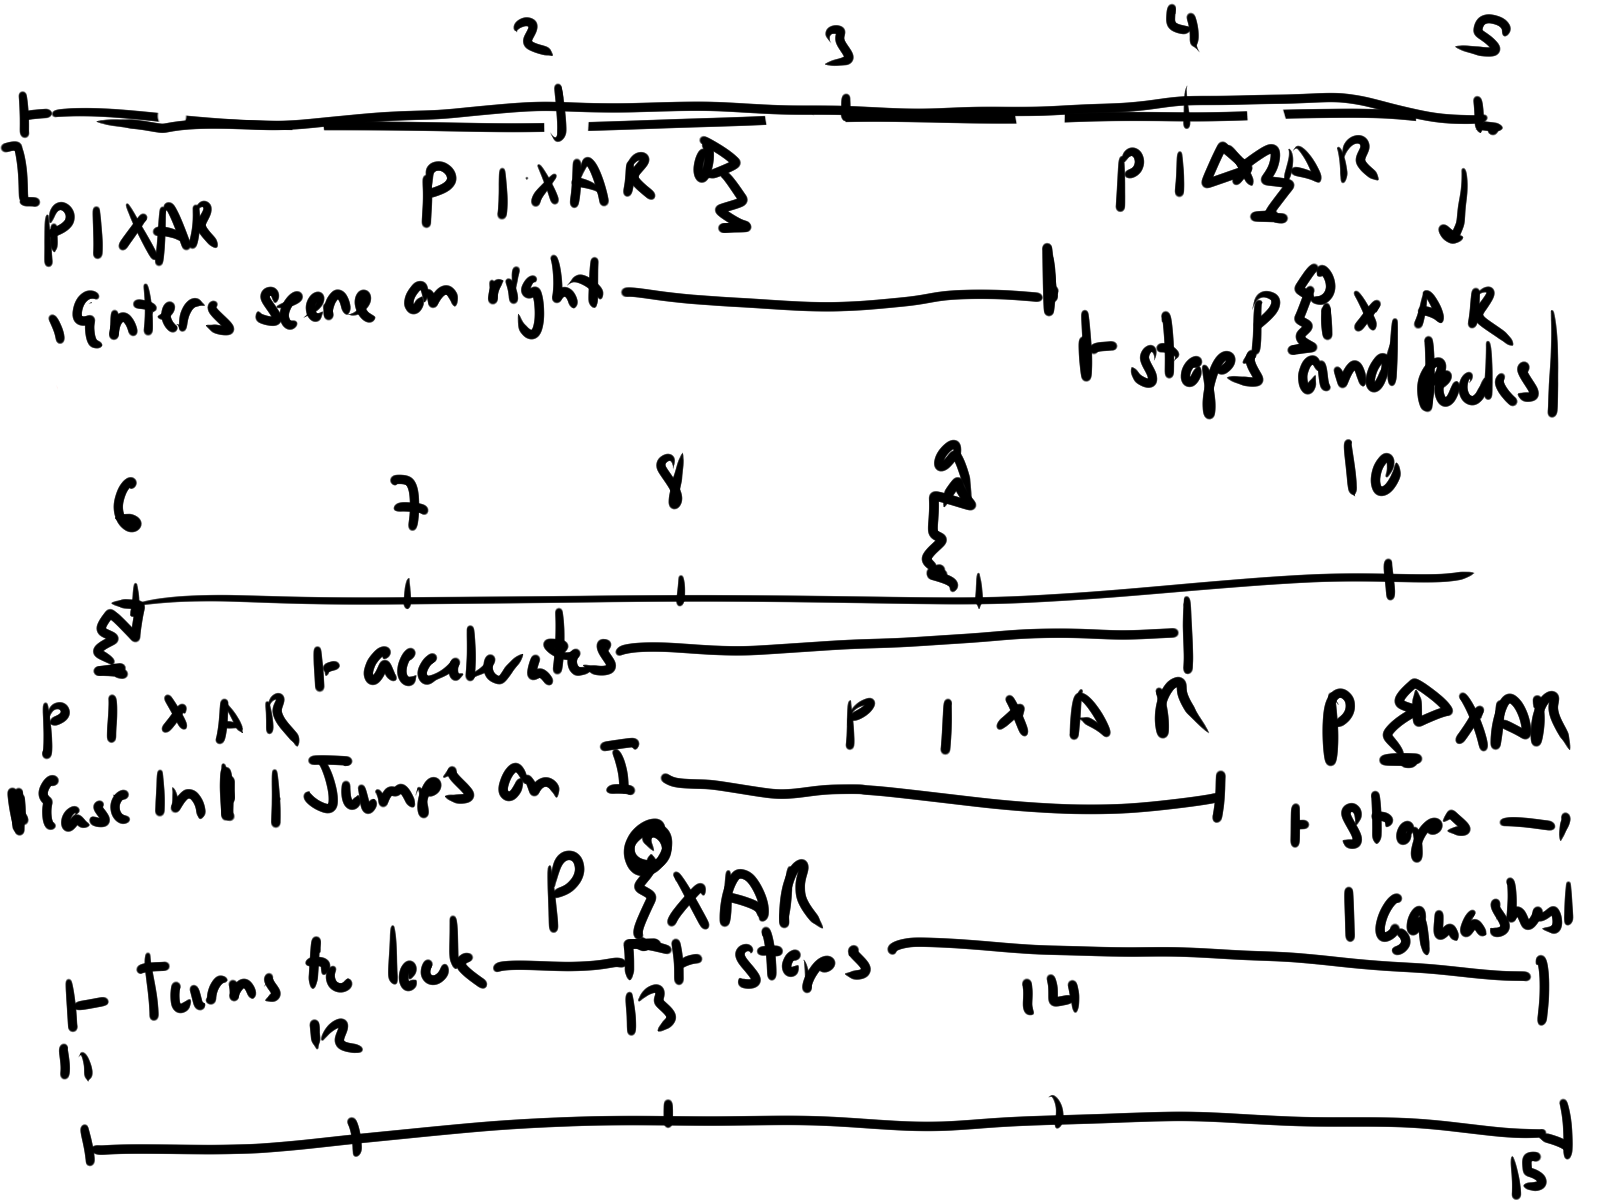 2 3 4 5
1
PIXAR PIXAR PIXAR
Enters scene on right
PIXAR
stops and looks
6 7 8 9 10
accelerates
PIXAR PIXAR P XAR
Ease In Jumps on I
stops
squashes
P XAR
Turns to look stops
11 12 13 14
15